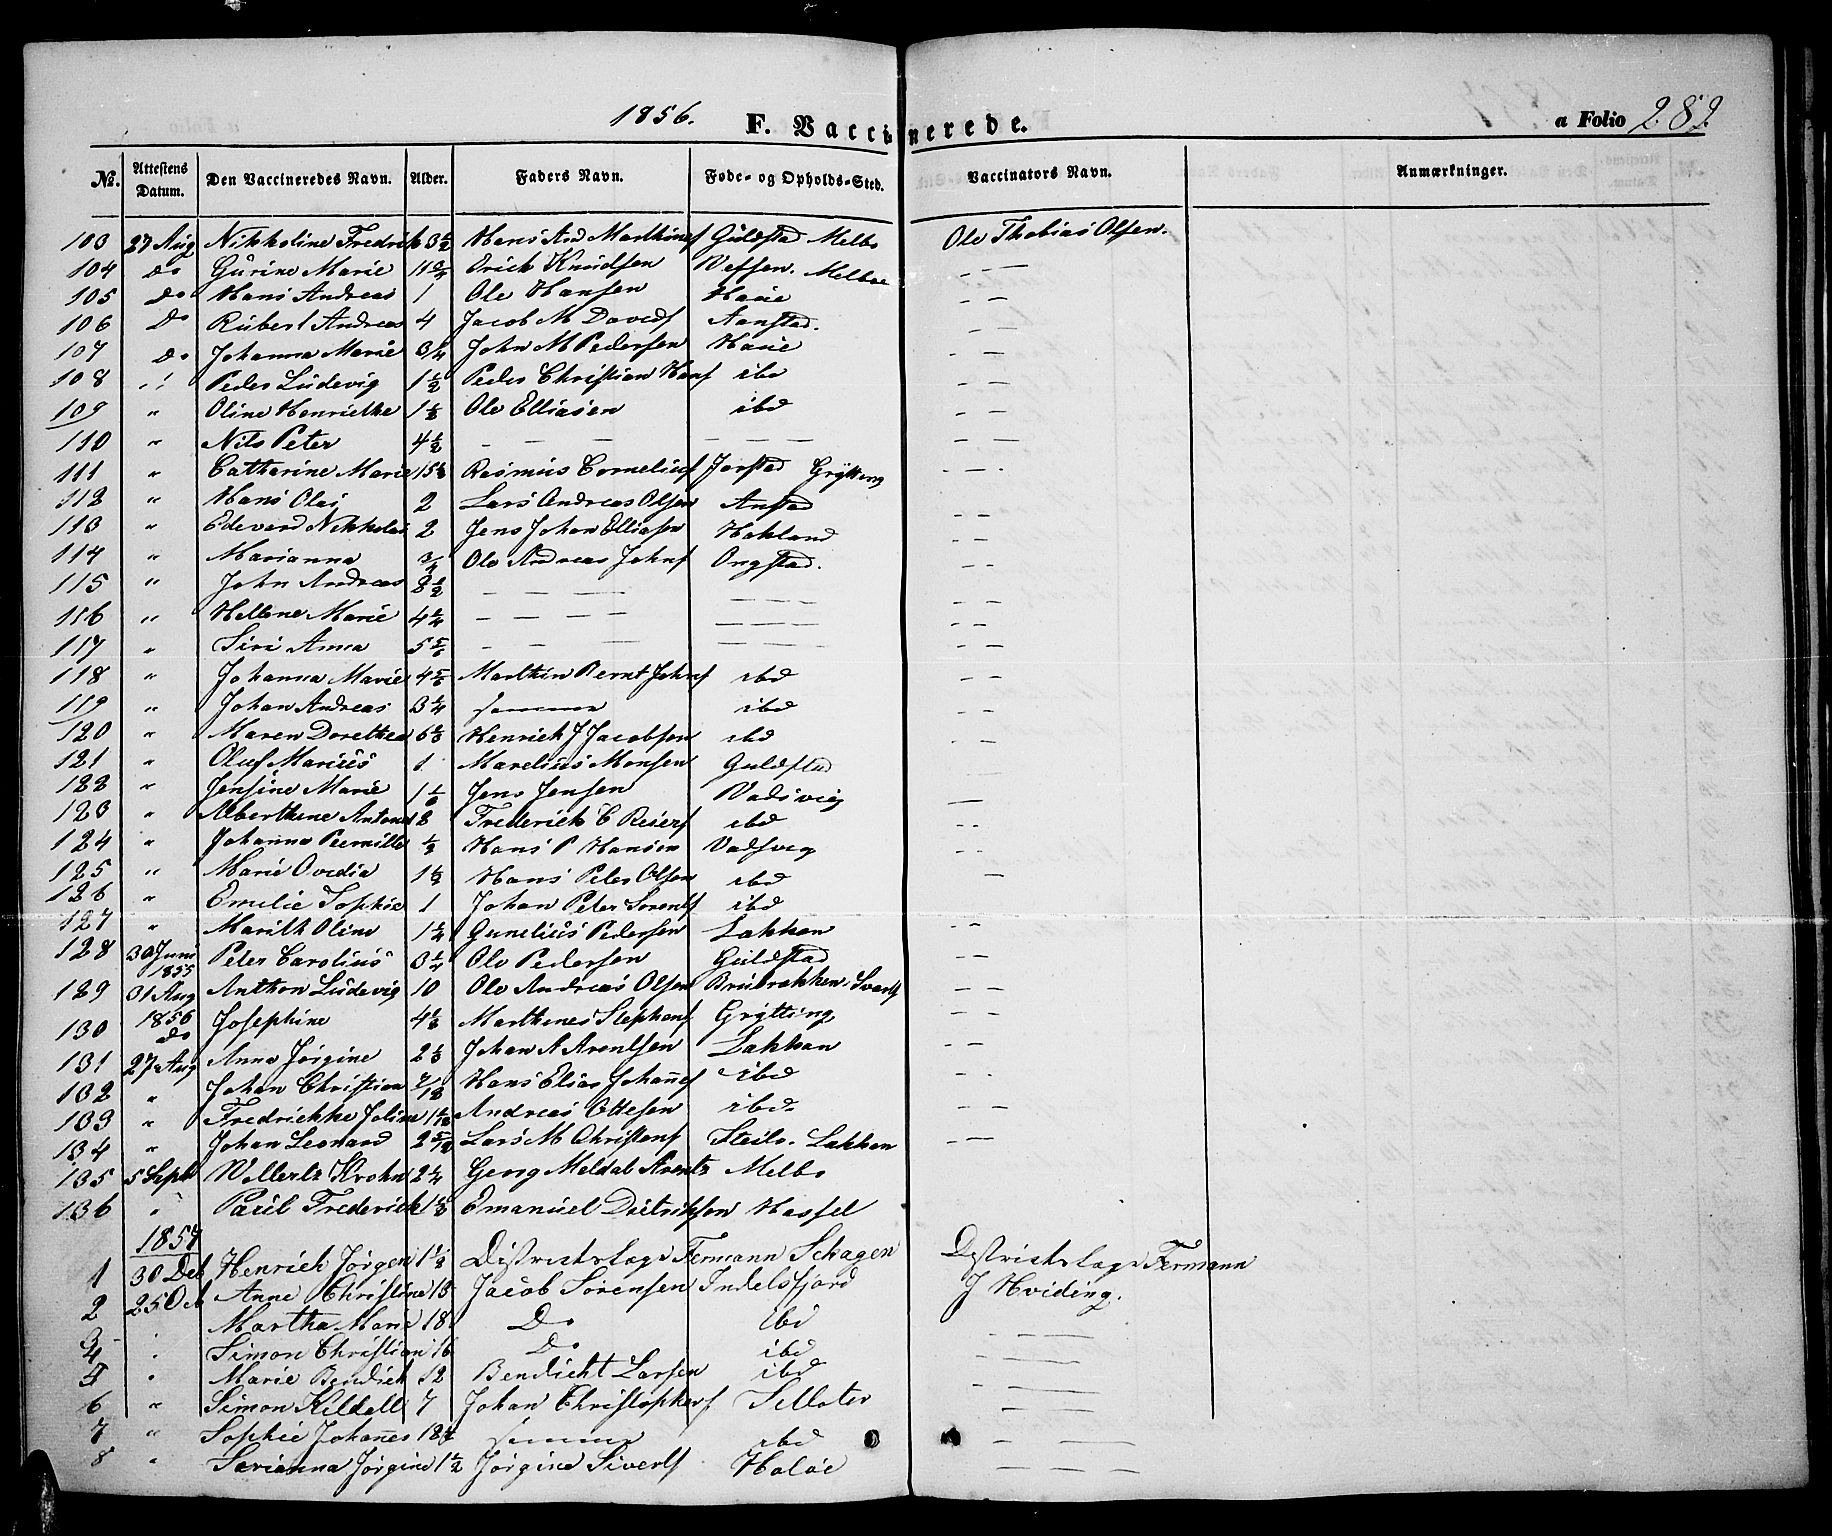 1856. F. Vaccinerede. a Folio 282.
No. Attestens Datum. Den Vaccineredes Navn. Alder. Faders Navn. Føde- og Opholds-Sted. Vaccinators Navn. Anmærkninger.
103 27 Aug Nikkoline Fredrik 3 1/2 Hans And Marthinesf Guldstad Melbo Ole Thobias Olsen.
104 Do Gurine Marie 11 Orich Knudsen Vefsen. Melboe — —
105 Do Hans Andreas 1 Ole Hansen — —
106 Do Rubert Andreas 4 Jacob M Davidsf Aanstad. — —
107 Do Johanna Marie 3/4 John M Pedersen — —
108 " Peder Ludevig 1 1/2 Peder Christian Hansf ibd — —
109 " Oline Henriethe 1 1/2 Ole Elliasen ibd — —
110 " Nils Peter 4 1/2 — — — — — — — — — —
111 " Catharine Marie 15 Rasmus Corneliusf Jorstad Grytting — —
112 " Hans Olai 2 Lars Andreas Olsen Anstad — —
113 " Edevard Nikkolai 2 Jens Johan Elliasen Hokland — —
114 " Marianna 3/4 Ole Andreas Johnsf Ongstad. — —
115 " John Andreas 8 1/2 — — — — — — — — —
116 " Hellene Marie 4 1/4 — — — — — — — — —
117 " Siri Anna 5 5/6 — — — — — — — — —
118 " Johanna Marie 4 5/6 Marthin Bernt Johnsf ibd — —
119 " Johan Andreas 3 1/4 samme ibd — —
120 " Maren Dorethea 6 Henrich J Jacobsen ibd — —
121 " Oluf Marius 1 Marelius Monsen Guldstad — —
122 " Jensine Marie 1 1/6 Jens Jensen Vadsvig —
123 " Alberthine Antone 2 Frederich C Reiersf ibd — —
124 " Johanna Pernille 1/2 Hans P Hansen Vadsvig — —
125 " Marie Ovedia 1 1/2 Hans Peter Olsen ibd —
126 " Emelie Sophie 1 Johan Peter Sorensf ibd
127 " Marith Oline 1 1/4 Gunelius Pedersen Lakken — —
128 30 Juni 1855 Peter Carolius 3 1/4 Ole Pedersen Guldstad — —
129 31 Aug 1856 Anthon Ludevig 10 Ole Andreas Olsen — —
130 Do Josephine 4 1/2 Marthines Stephensf Grytting — —
131 27 Aug Anna Jørgine 2 1/3 Johan A Arentsen Lakken — —
132 " Johan Christian 7/12 Hans Elias Johannesf ibd — —
133 " Fredrikke Joline 1 1/12 Andreas Ottesen ibd — —
134 " Johan Leonard 2 5/12 Lars M Christensf Steilo. Lakken — —
135 5 Sept Vellertz Krohn 2 1/4 Georg Meldal Arentz Melbo
136 " Paul Frederich 1 Emanuel Ditrikson Hassel
1857
1 30 Det Henrich Jørgen 1 1/2 Districtslæge Fermann Schagen Districtslæge Fermann
2 25 Oct Anne Christine 13 Jacob Sørensen Indelsfjord J Hviding.
3 " Martha Marie 18 Do ibd — — — —
4 " Simon Christian 16 Do ibd — — — —
5 " Marie Bendicht 12 Bendicht Larsen ibd — — — —
6 " Simon Kildall 7 Johan Christophersf Selloter — — — —
7 " Sophie Johannes 18 samme ibd — — — —
8 " Serianna Jørgine 1 1/2 Jørgine Sivertsf Haløe — — — —